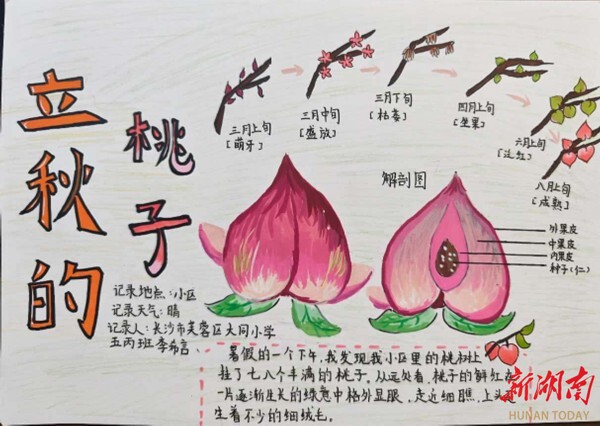 立秋的
桃子
三月上旬
[萌牙]
三月中旬
[盛放]
三月下旬
[枯萎]
四月上旬
[坐果]
六月上旬
[泛红]
八月上旬
[成熟]
解剖图
外果皮
中果皮
内果皮
种子(仁)
记录地点:小区
记录天气:晴
记录人:长沙市芙蓉区大同小学
五丙班 李希言
暑假的一个下午,我发现我小区里的桃树上
挂了七八个丰满的桃子。从远处看,桃子的鲜红在
一片逐渐生长的绿意中格外显眼,走近细瞧,上头
生着不少的细绒毛。
新湖南
HUNAN TODAY